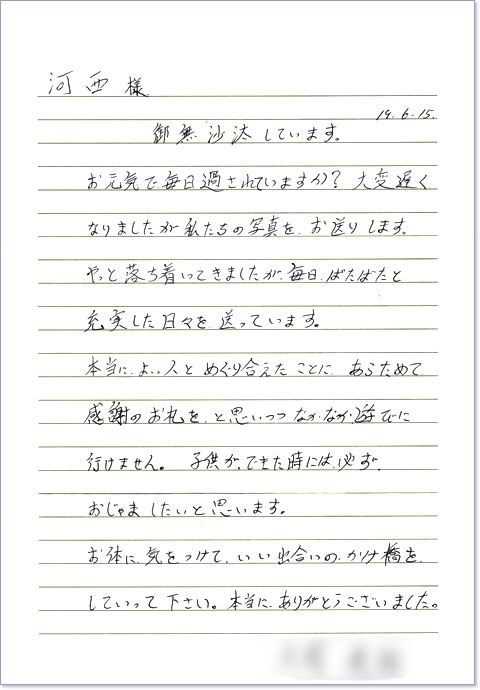 河西様
19.6.15.
御無沙汰しています。
お元気で毎日過されていますか？大変遅く
なりましたが私たちの写真を、お送りします。
やっと落ち着いてきましたが、毎日、ばたばたと
充実した日々を、送っています。
本当に、よい人とめぐり合えたことに、あらためて
感謝のお礼を、と思いつつなかなか遊びに
行けません。子供が、できた時には、必ず、
おじゃましたいと思います。
お体に、気をつけて、いい出合いの、かけ橋を、
していって下さい。本当に、ありがとうございました。